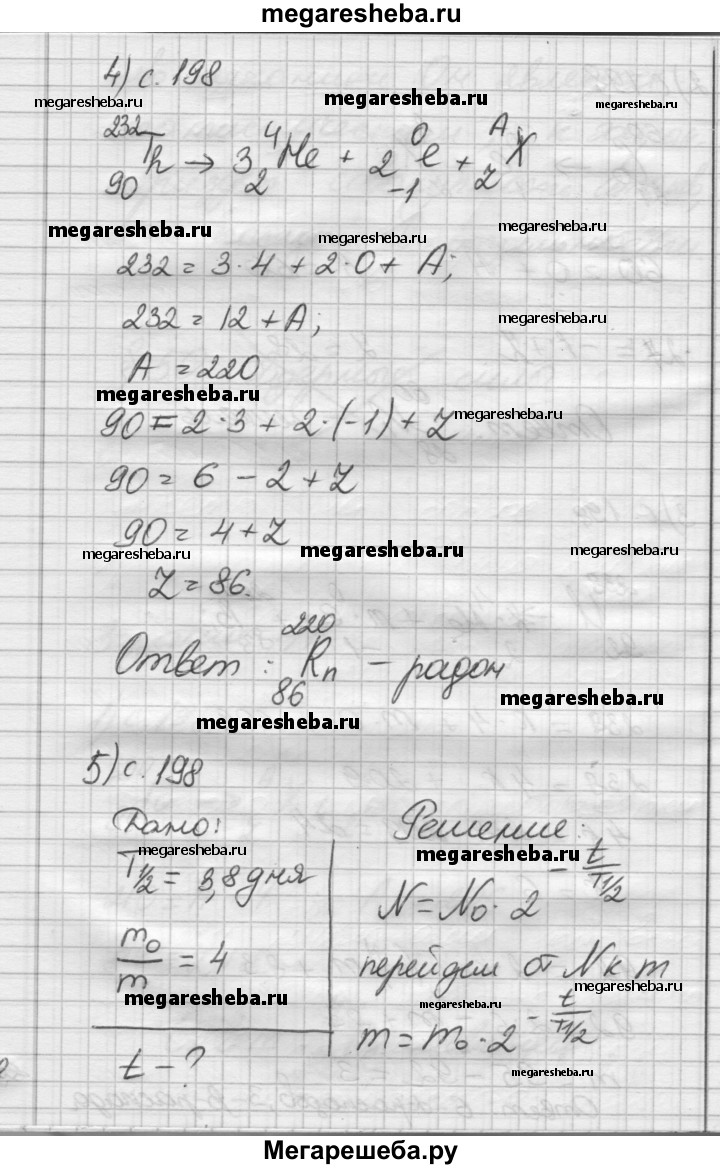 megaresheba.ru
4) с. 198
megaresheba.ru megaresheba.ru megaresheba.ru
²³²₉₀Th → 3⁴₂He + 2⁰₋₁e + ᴬ_Z X
megaresheba.ru megaresheba.ru megaresheba.ru
232 = 3·4 + 2·0 + A;
232 = 12 + A; megaresheba.ru
A = 220
megaresheba.ru
90 = 2·3 + 2·(-1) + Z megaresheba.ru
90 = 6 - 2 + Z
90 = 4 + Z
megaresheba.ru megaresheba.ru megaresheba.ru
Z = 86.
Ответ: ²²⁰₈₆Rn - радон
megaresheba.ru
megaresheba.ru
5) с. 198
Дано:
megaresheba.ru
T½ = 3,8 дня
m₀/m = 4
megaresheba.ru
t - ?
Решение:
megaresheba.ru
N = N₀ · 2^(-t/T½)
перейдем от N к m
megaresheba.ru
megaresheba.ru
m = m₀ · 2^(-t/T½)
megaresheba.ru
Мегарешеба.ру